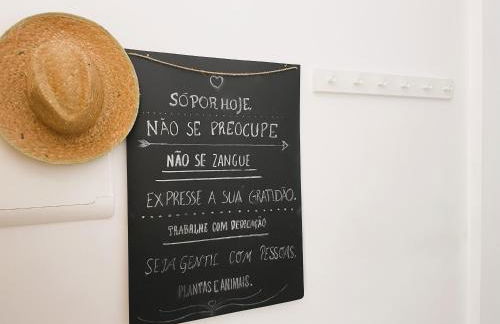 SÓ POR HOJE,
NÃO SE PREOCUPE
NÃO SE ZANGUE
EXPRESSE A SUA GRATIDÃO.
TRABALHE COM DEDICAÇÃO
SEJA GENTIL COM PESSOAS,
PLANTAS E ANIMAIS.